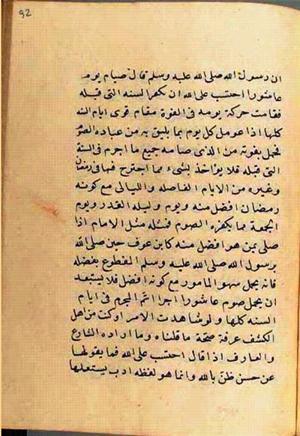 92
ان رسول الله صلى الله عليه وسلم قال صيام يوم
عاشورا احتسب على الله ان يكفر السنه التى قبله
فقامت حركة يومه فى القوة مقام قوى ايام السنه
كلها اذا عومل كل يوم بما يليق به من عباده الصوم
فحمل بقوته من الذى صامه جميع ما اجرم فى السنة
التى قبله فلا يؤاخذ بشىء مما اجترح فيها فى رمضان
وغيره من الايام الفاضله والليالى مع كونه
رمضان افضل منه ويوم وليلة القدر ويوم
الجمعة مما يكفره الصوم فمثله مثل الامام اذا
صلى بمن هو افضل منه كابن عوف حين صلى
برسول الله صلى الله عليه وسلم المقطوع بفضله
فانه يحمل سهو المامور مع كونه افضل فلا يستبعد
ان يحمل صوم عاشورا جرائم المجرم فى ايام
السنه كلها ولو شاهدت الامر او كنت من اهل
الكشف عرفة صحة ما قلناه وما اراده الشارع
والعارف اذا قال احتسب على الله فما يقولها
عن حسن ظن بالله وانما هو لفظه ادب يستعملها